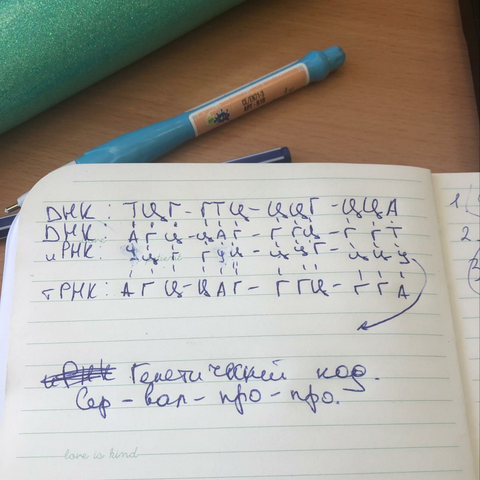 ДНК: ТЦГ - ГТЦ - ЦЦГ - ЦЦА
ДНК: АГЦ - ЦАГ - ГГЦ - ГГТ
иРНК: УЦГ ГУЦ - ЦЦГ - ЦЦУ
тРНК: АГЦ - ЦАГ - ГГЦ - ГГА
Генетический код.
Сер - вал - про - про.
love is kind
1
2
3